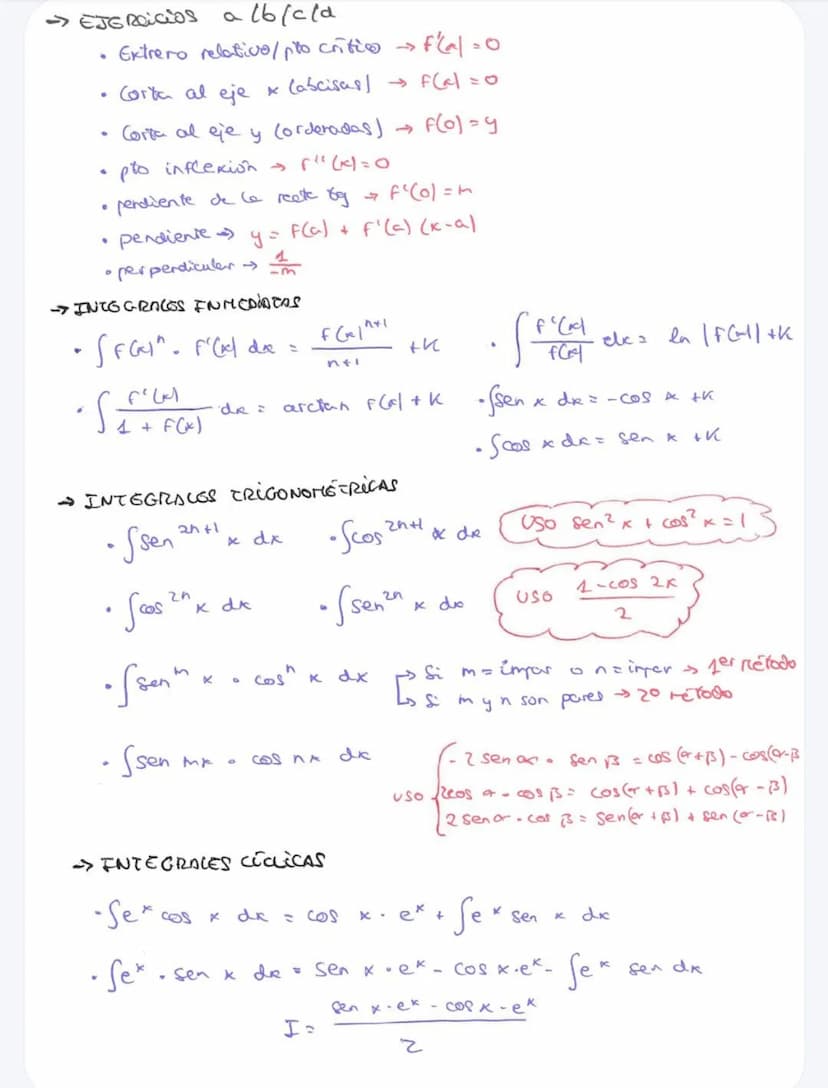 → EJERCICIOS a/b/c/d
• Extremo relativo/pto crítico → f'(a) = 0
• Corta al eje x (abscisas) → f(x) = 0
• Corta al eje y (ordenadas) → f(0) = y
• pto inflexión → f''(x) = 0
• pendiente de la recta tg → f'(0) = m
• pendiente → y = f(a) + f'(a) (x-a)
• perpendicular → 1/-m
→ INTEGRALES INMEDIATAS
• ∫ f(x)^n · f'(x) dx = f(x)^{n+1}/(n+1) + K • ∫ f'(x)/f(x) dx = ln |f(x)| + K
• ∫ f'(x)/(1 + f(x)) dx = arctan f(x) + K • ∫sen x dx = -cos x + K
• ∫cos x dx = sen x + K
→ INTEGRALES TRIGONOMÉTRICAS
• ∫sen^{2n+1} x dx • ∫cos^{2n+1} x dx USO sen² x + cos² x = 1
• ∫cos^{2n} x dx • ∫sen^{2n} x dx USO (1-cos 2x)/2
• ∫sen^m x · cos^n x dx → Si m = impar o n = impar → 1er método
↳ Si m y n son pares → 2º método
• ∫sen mx · cos nx dx
USO
- 2 sen α · sen β = cos (α+β) - cos(α-β
2cos α - cos β = cos(α+β) + cos(α-β)
2 sen α · cos β = sen(α+β) + sen (α-β)
→ INTEGRALES CÍCLICAS
• ∫e^x cos x dx = cos x · e^x + ∫e^x sen x dx
• ∫e^x · sen x dx = sen x · e^x - cos x · e^x - ∫e^x sen dx
I = (sen x · e^x - cos x - e^x)/2